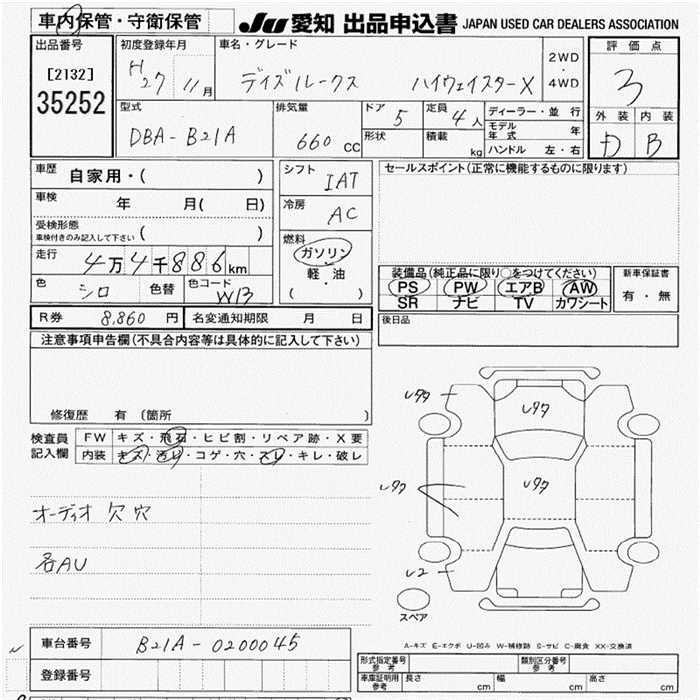 車内保管・守衛保管
JU 愛知 出品申込書 JAPAN USED CAR DEALERS ASSOCIATION
出品番号
[2132]
35252
初度登録年月
H27 11月
車名・グレード
デイズルークス ハイウェイスターX
2WD
・
4WD
評価点
3
外装 内装
D B
型式
DBA-B21A
排気量
660 CC
ドア 5
形状
定員 4人
積載 kg
ディーラー・並行
モデル年式 年
ハンドル 左・右
車歴
自家用・( )
車検 年 月( 日)
受検形態
車検付きのみ記入して下さい ( )
走行 4万4千886km
色 シロ 色替 色コード WB
シフト IAT
冷房 AC
燃料
ガソリン
軽・油
( )
セールスポイント(正常に機能するものに限ります)
装備品(純正品に限り○をつけてください)
PS PW エアB AW
SR ナビ TV カワシート
新車保証書
有・無
R券 8,860 円 名変通知期限 月 日
後日品
注意事項申告欄(不具合内容等は具体的に記入して下さい)
修復歴 有 (箇所 )
検査員
記入欄
FW キズ・飛石・ヒビ割・リペア跡・X要
内装 キズ・汚れ・コゲ・穴・スレ・キレ・破レ
オーディオ欠穴
各AU
スペア
車台番号 B21A-0200045
登録番号
A-キズ E-エクボ U-凹み W-補修跡 S-サビ C-腐食 XX-交換済
形式指定番号
参考
類別区分番号
参考
車庫証明用
参考
長さ cm 幅 cm 高さ cm